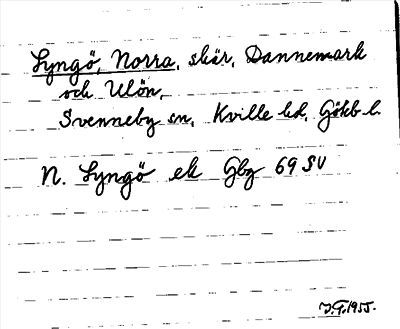 Lyngö, Norra, skär, Dannemark
och Ulön,
Svenneby sn, Kville hd, Göteb l.
N. Lyngö ek Gbg 69 SV
J.G. 1955.